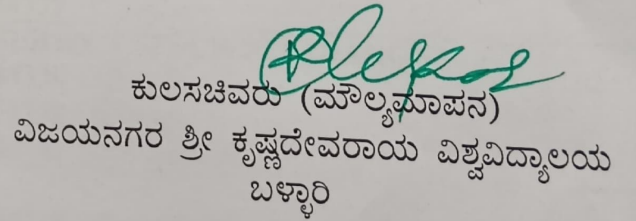 ಕುಲಸಚಿವರು (ಮೌಲ್ಯಮಾಪನ)
ವಿಜಯನಗರ ಶ್ರೀ ಕೃಷ್ಣದೇವರಾಯ ವಿಶ್ವವಿದ್ಯಾಲಯ
ಬಳ್ಳಾರಿ